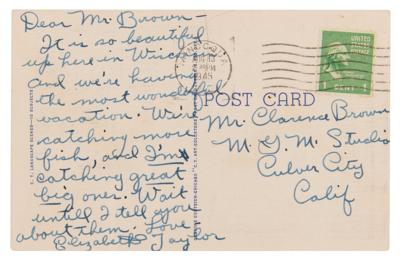 Dear Mr. Brown -
It is so beautiful
up here in Wisconsin
and we're having
the most wonderful
vacation. We're
catching more
fish, and I'm
catching great
big oner. Wait
untill I tell you
about them. Love
Elizabeth Taylor
1945
UNITED STATES POSTAGE
1 CENT 1
POST CARD
Mr. Clarence Brown
M.G.M. Studio
Culver City
Calif